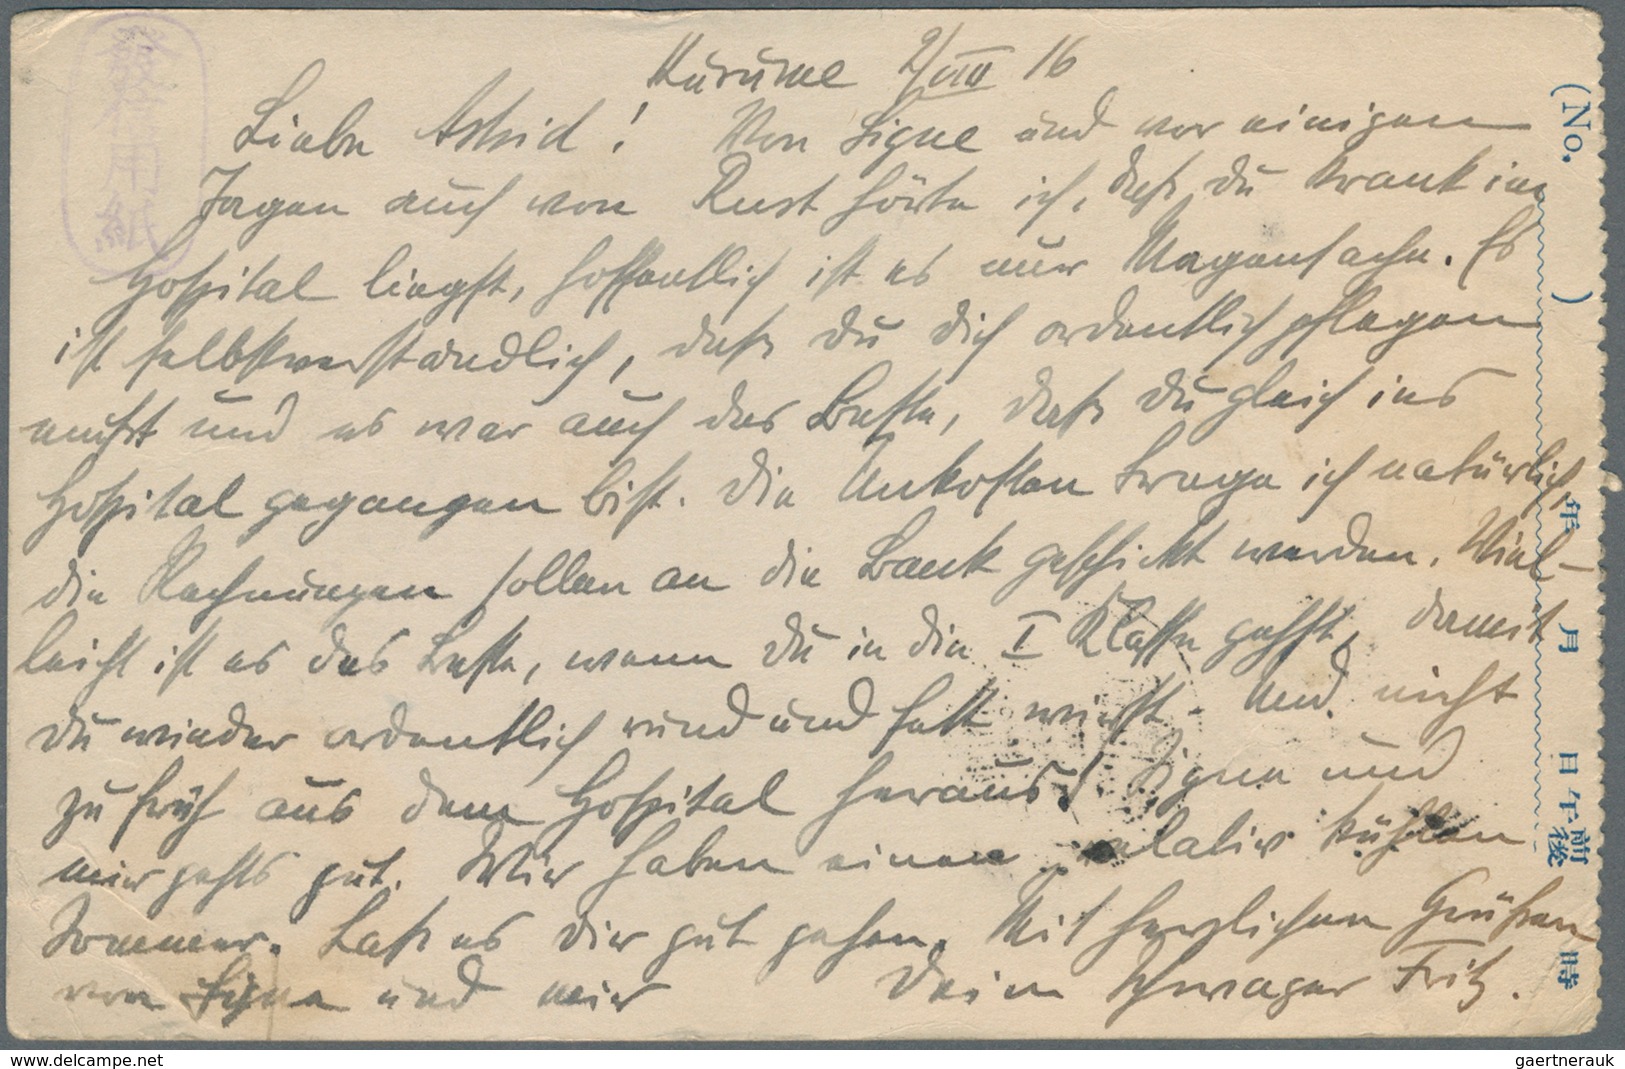 發信用紙
Kurume 2/VIII 16
Liebe Astrid! Von Signe und vor einigen
Tagen auch von Rust hörte ich, daß Du krank im
Hospital liegst, hoffentlich ist es nur Magensache. Es
ist selbstverständlich, daß Du Dich ordentlich pflegen
mußt und es war auch das Beste, daß Du gleich ins
Hospital gegangen bist. Die Unkosten trage ich natürlich,
die Rechnungen sollen an die Bank geschickt werden. Viel-
leicht ist es das Beste, wenn Du in die I Klasse gehst, damit
Du wieder ordentlich rund und fett wirst. Und nicht
zu früh aus dem Hospital heraus! Signe und
mir gehts gut. Wir haben einen relativ kühlen
Sommer. Laß es Dir gut gehen. Mit herzlichen Grüßen
von Signe und mir Dein Schwager Fritz.
(No. )
年 月 日 午前後 時
www.delcampe.net
gaertnerauk